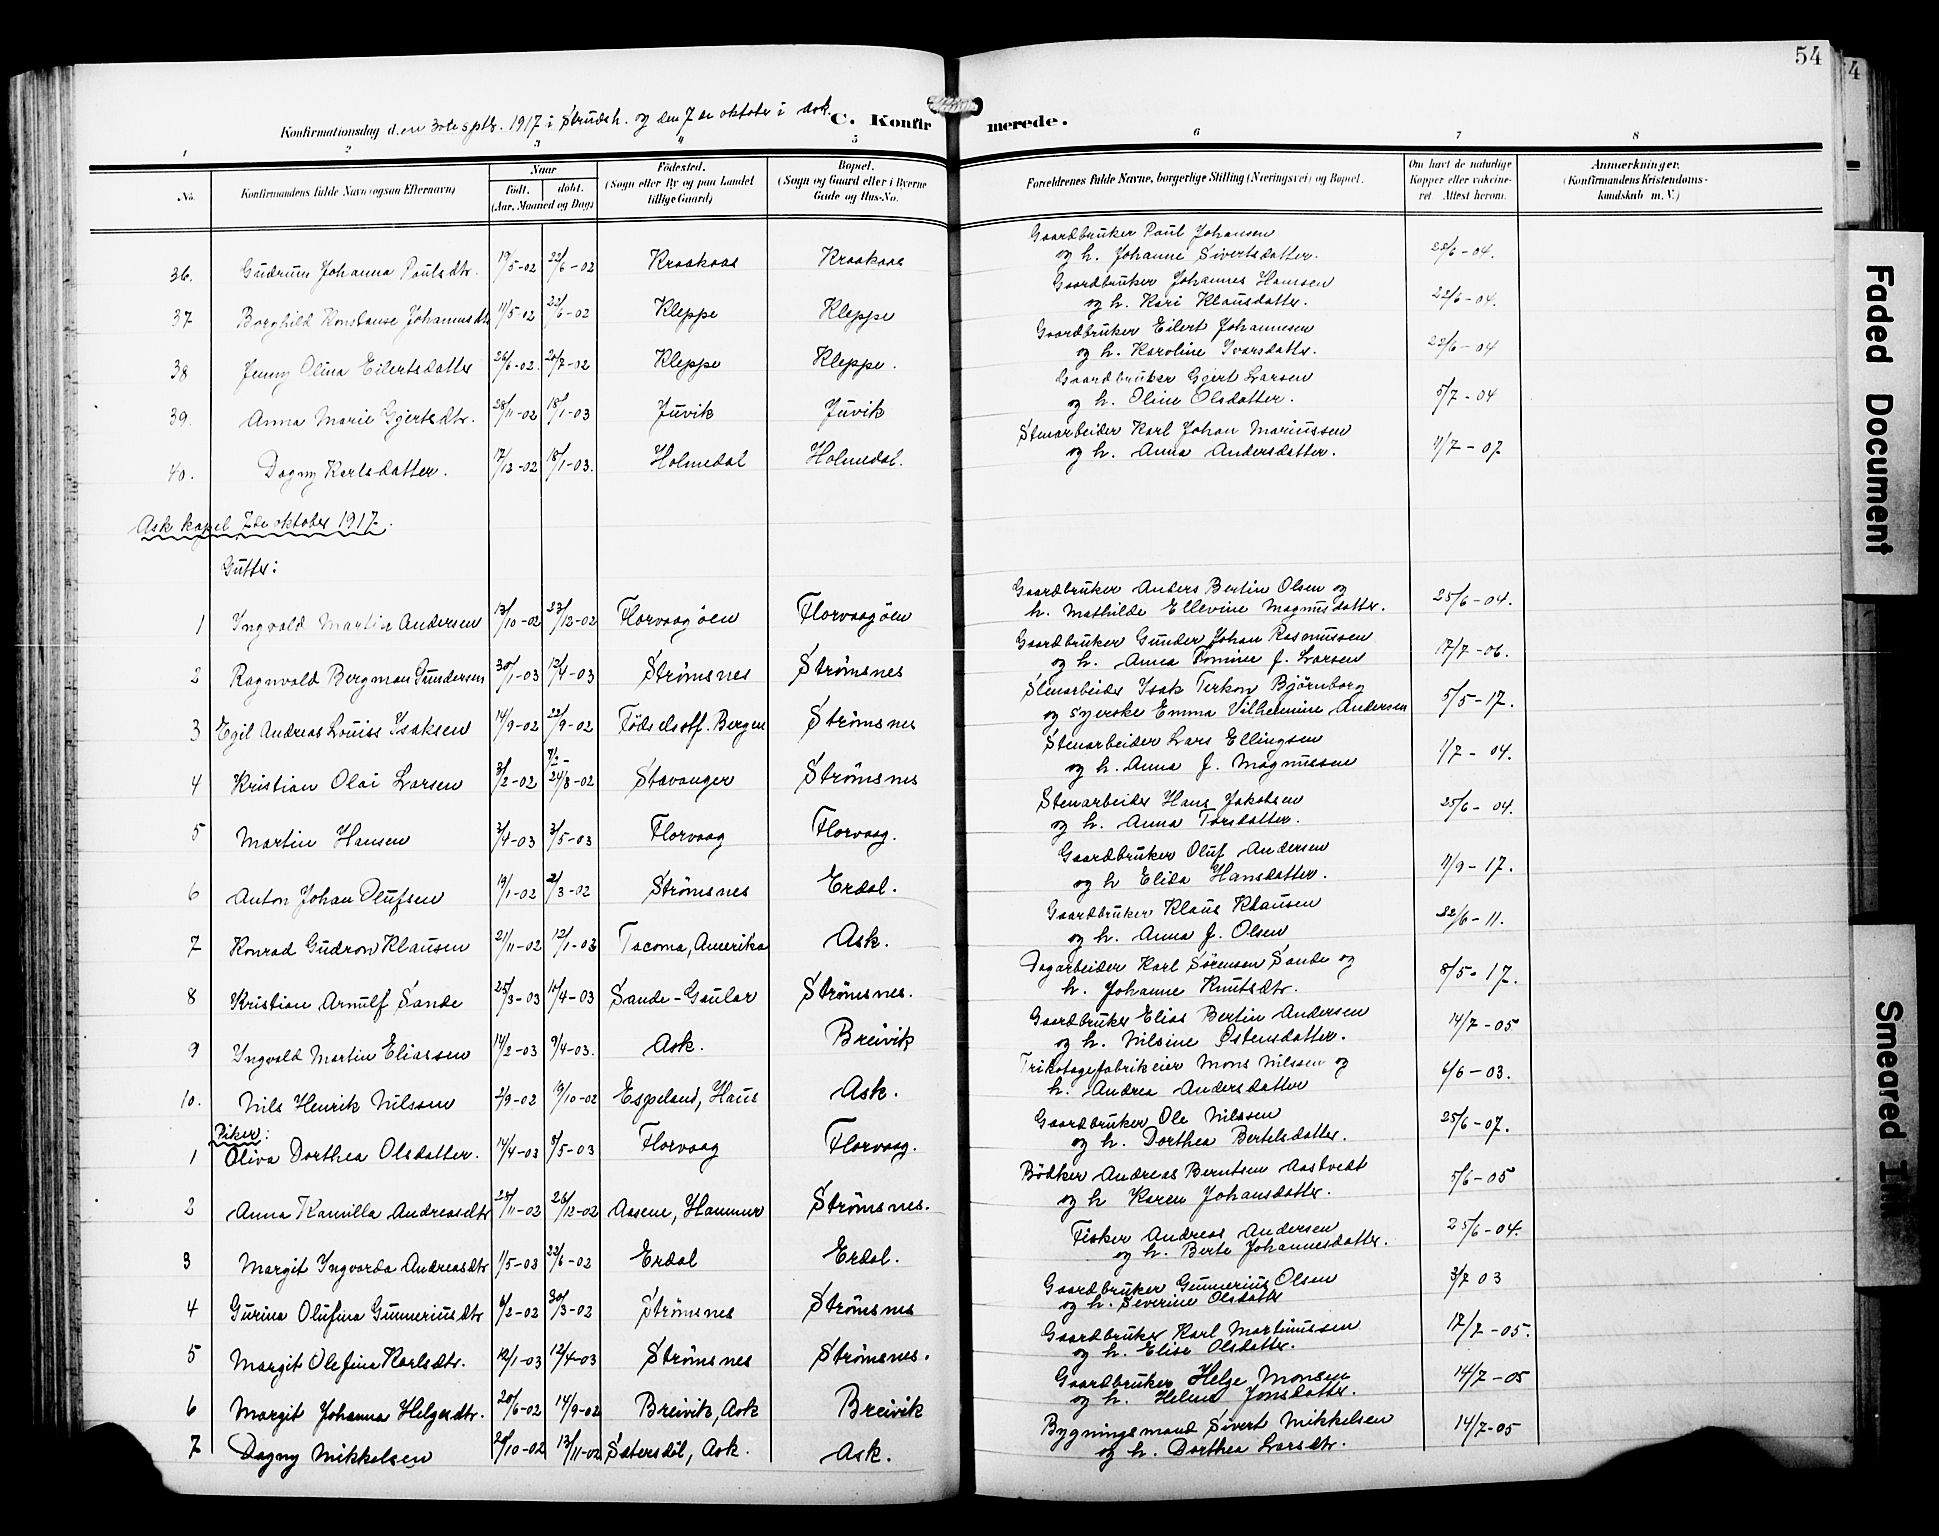 54
4
Konfirmationsdag den 30te sptbr. 1917 i Strudsh. og den 7de oktober i Ask. C. Konfirmerede.
1 2 3 4 5 6 7 8
No. Konfirmandens fulde Navn (ogsaa Efternavn) Naar født. døbt. (Aar, Maaned og Dag) Fødested. (Sogn eller By og paa Landet tillige Gaard) Bopæl. (Sogn og Gaard eller i Byerne Gade og Hus-No. Forældrenes fulde Navne, borgerlige Stilling (Næringsvei) og Bopæl. Om havt de naturlige Kopper eller vakcineret. Attest herom. Anmærkninger. (Konfirmandens Kristendomskundskab m. V.)
36. Gudrun Johanna Paulsdtr. 19/5-02 22/6-02 Kraakaas Kraakaas Gaardbruker Paul Johansen og h. Johanne Sivertsdatter. 25/6-04.
37 Borghild Konstanse Johannesdtr 11/5-02 22/6-02 Kleppe Kleppe Gaardbruker Johannes Hansen og h. Kari Klausdatter. 22/6-04.
38 Jenny Olina Eilertsdatter 26/6-02 20/7-02 Kleppe Kleppe. Gaardbruker Eilert Johannesen og h. Karoline Ivarsdatter. 25/6-04
39. Anna Marie Gjertsdtr. 28/11-02 18/1-03 Juvik Juvik Gaardbruker Gjert Larsen og h. Oline Olsdatter. 5/7-04
40. Dagny Karlsdatter. 17/12-02 18/1-03. Holmedal Holmedal. Stenarbeider Karl Johan Mariussen og h. Anna Andersdatter. 4/7-07
Ask kapel 7de oktober 1917.
Gutter:
1 Ingvald Martin Andersen 13/10-02 23/12-02 Florvaagöen Florvaagöen Gaardbruker Anders Bertin Olsen og h. Mathilde Ellevine Magnusdatter. 25/6-04.
2 Ragnvald Bergman Gundersen 30/1-03 12/4-03 Strömsnes Strömsnes Gaardbruker Gunder Johan Rasmussen og h. Anna Tomine J. Larsen 17/7-06.
3 Egil Andreas Louiss Isaksen 14/9-02 22/9-02 Födselsstf. Bergen Strömsnes Stenarbeider Isak Terkon Björnborg og syerske Emma Vilhelmine Andersen 5/5-17.
4 Kristian Olai Larsen 3/2-02 7/2- 24/8-02 Stavanger Strömsnes Stenarbeider Lars Ellingsen og h. Anna J. Magnussen 1/7-04.
5 Martin Hansen 3/4-03 3/5-03 Florvaag Florvaag. Stenarbeider Hans Jakobsen og h. Anna Torsdatter. 25/6-04.
6 Anton Johan Olufsen 19/1-02 2/3-02 Strömsnes Erdal. Gaardbruker Oluf Andersen og h Elida Hansdatter. 11/9-17.
7 Konrad Gudron Klausen 21/11-02 12/1-03 Tacoma, Amerika Ask. Gaardbruker Klaus Klausen og h. Anna J. Olsen 22/6-11.
8 Kristian Arnulf Sande 25/3-03 10/4-03 Sande-Gaular Strömsnes. Dagarbeider Karl Sörensen Sande og h. Johanne Knutsdtr. 8/5-17.
9 Ingvald Martin Eliassen 14/2-03 9/4-03. Ask. Breivik Gaardbruker Elias Bertin Andersen og h. Nilsine Ostensdatter. 14/7-05
10. Nils Henrik Nilssen 2/9-02 19/10-02 Espeland, Haus Ask. Trikotagefabrikeier Mons Nilssen og h. Andrea Andersdatter 6/6-03.
Piker:
1 Oliva Dorthea Olsdatter. 14/4-03 3/5-03 Florvaag Florvaag. Gaardbruker Ole Nilssen og h. Dorthea Bertelsdatter. 25/6-07.
2 Anna Kamilla Andreasdtr 25/11-02 26/12-02 Aasene, Hammer Strömsnes. Bödker Andreas Berntsen Aastvedt og h Karen Johansdatter. 5/6-05
3 Margit Ingvarda Andreasdtr 1/5-03 22/6-02 Erdal Erdal. Fisker Andreas Andersen og h. Berte Johannesdatter. 25/6-04.
4 Gurina Olufina Gunneriusdtr 6/2-02 30/3-02 Strömsnes Strömsnes Gaardbruker Gunnerius Olsen og h. Severine Olsdatter 3/7 03
5 Margit Olefina Karlsdtr. 12/1-03 12/4-03 Strömsnes Strömsnes. Gaardbruker Karl Martinussen og h. Elise Olsdatter. 17/7-05.
6 Margit Johanna Helgesdtr. 20/6-02 14/9-02 Breivik, Ask Breivik Gaardbruker Helge Monsen og h. Helene Jonsdatter. 14/7-05
7 Dagny Mikkelsen 20/10-02 13/11-02 Sætersdöl, Ask. Ask. Bygningsmand Sivert Mikkelsen og h. Dorthea Larsdtr. 14/7-05
Faded Document
Smeared Ink